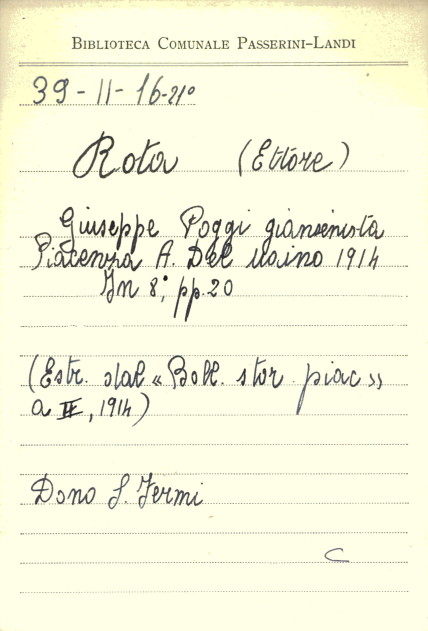 BIBLIOTECA COMUNALE PASSERINI-LANDI
39-11-16-21°
Rota (Ettore)
Giuseppe Poggi giansenista
Piacenza A. Del Maino 1914
In 8°, pp. 20
(Estr. dal «Boll. stor. piac»
a IX, 1914)
Dono S. Fermi
C